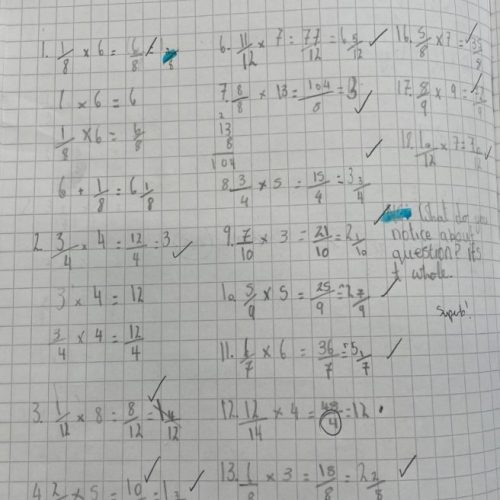 1. 1/8 × 6 = 6/8
1 × 6 = 6
1/8 × 6 = 6/8
6 + 1/8 = 6 1/8
2. 3/4 × 4 = 12/4 = 3
3 × 4 = 12
3/4 × 4 = 12/4
3. 1/12 × 8 = 8/12 =
4. 2/ × 5 = 10/
6. 11/12 × 7 = 77/12 = 6 5/12
7. 8/8 × 13 = 104/8 =
2
13
8
104
8. 3/4 × 5 = 15/4 = 3 3/4
9. 7/10 × 3 = 21/10 = 2 1/10
10 5/9 × 5 = 25/9 = 2 7/9
11. 6/7 × 6 = 36/7 = 5 1/7
12. 12/14 × 4 = 48/4 = 12
13. × 3 = 18/8 = 2 2/8
16. 5/8 × 7 =
17. 8/9 × 9 =
18. 10/12 × 7 =
What do you
notice about
question? it's
whole.
Superb!